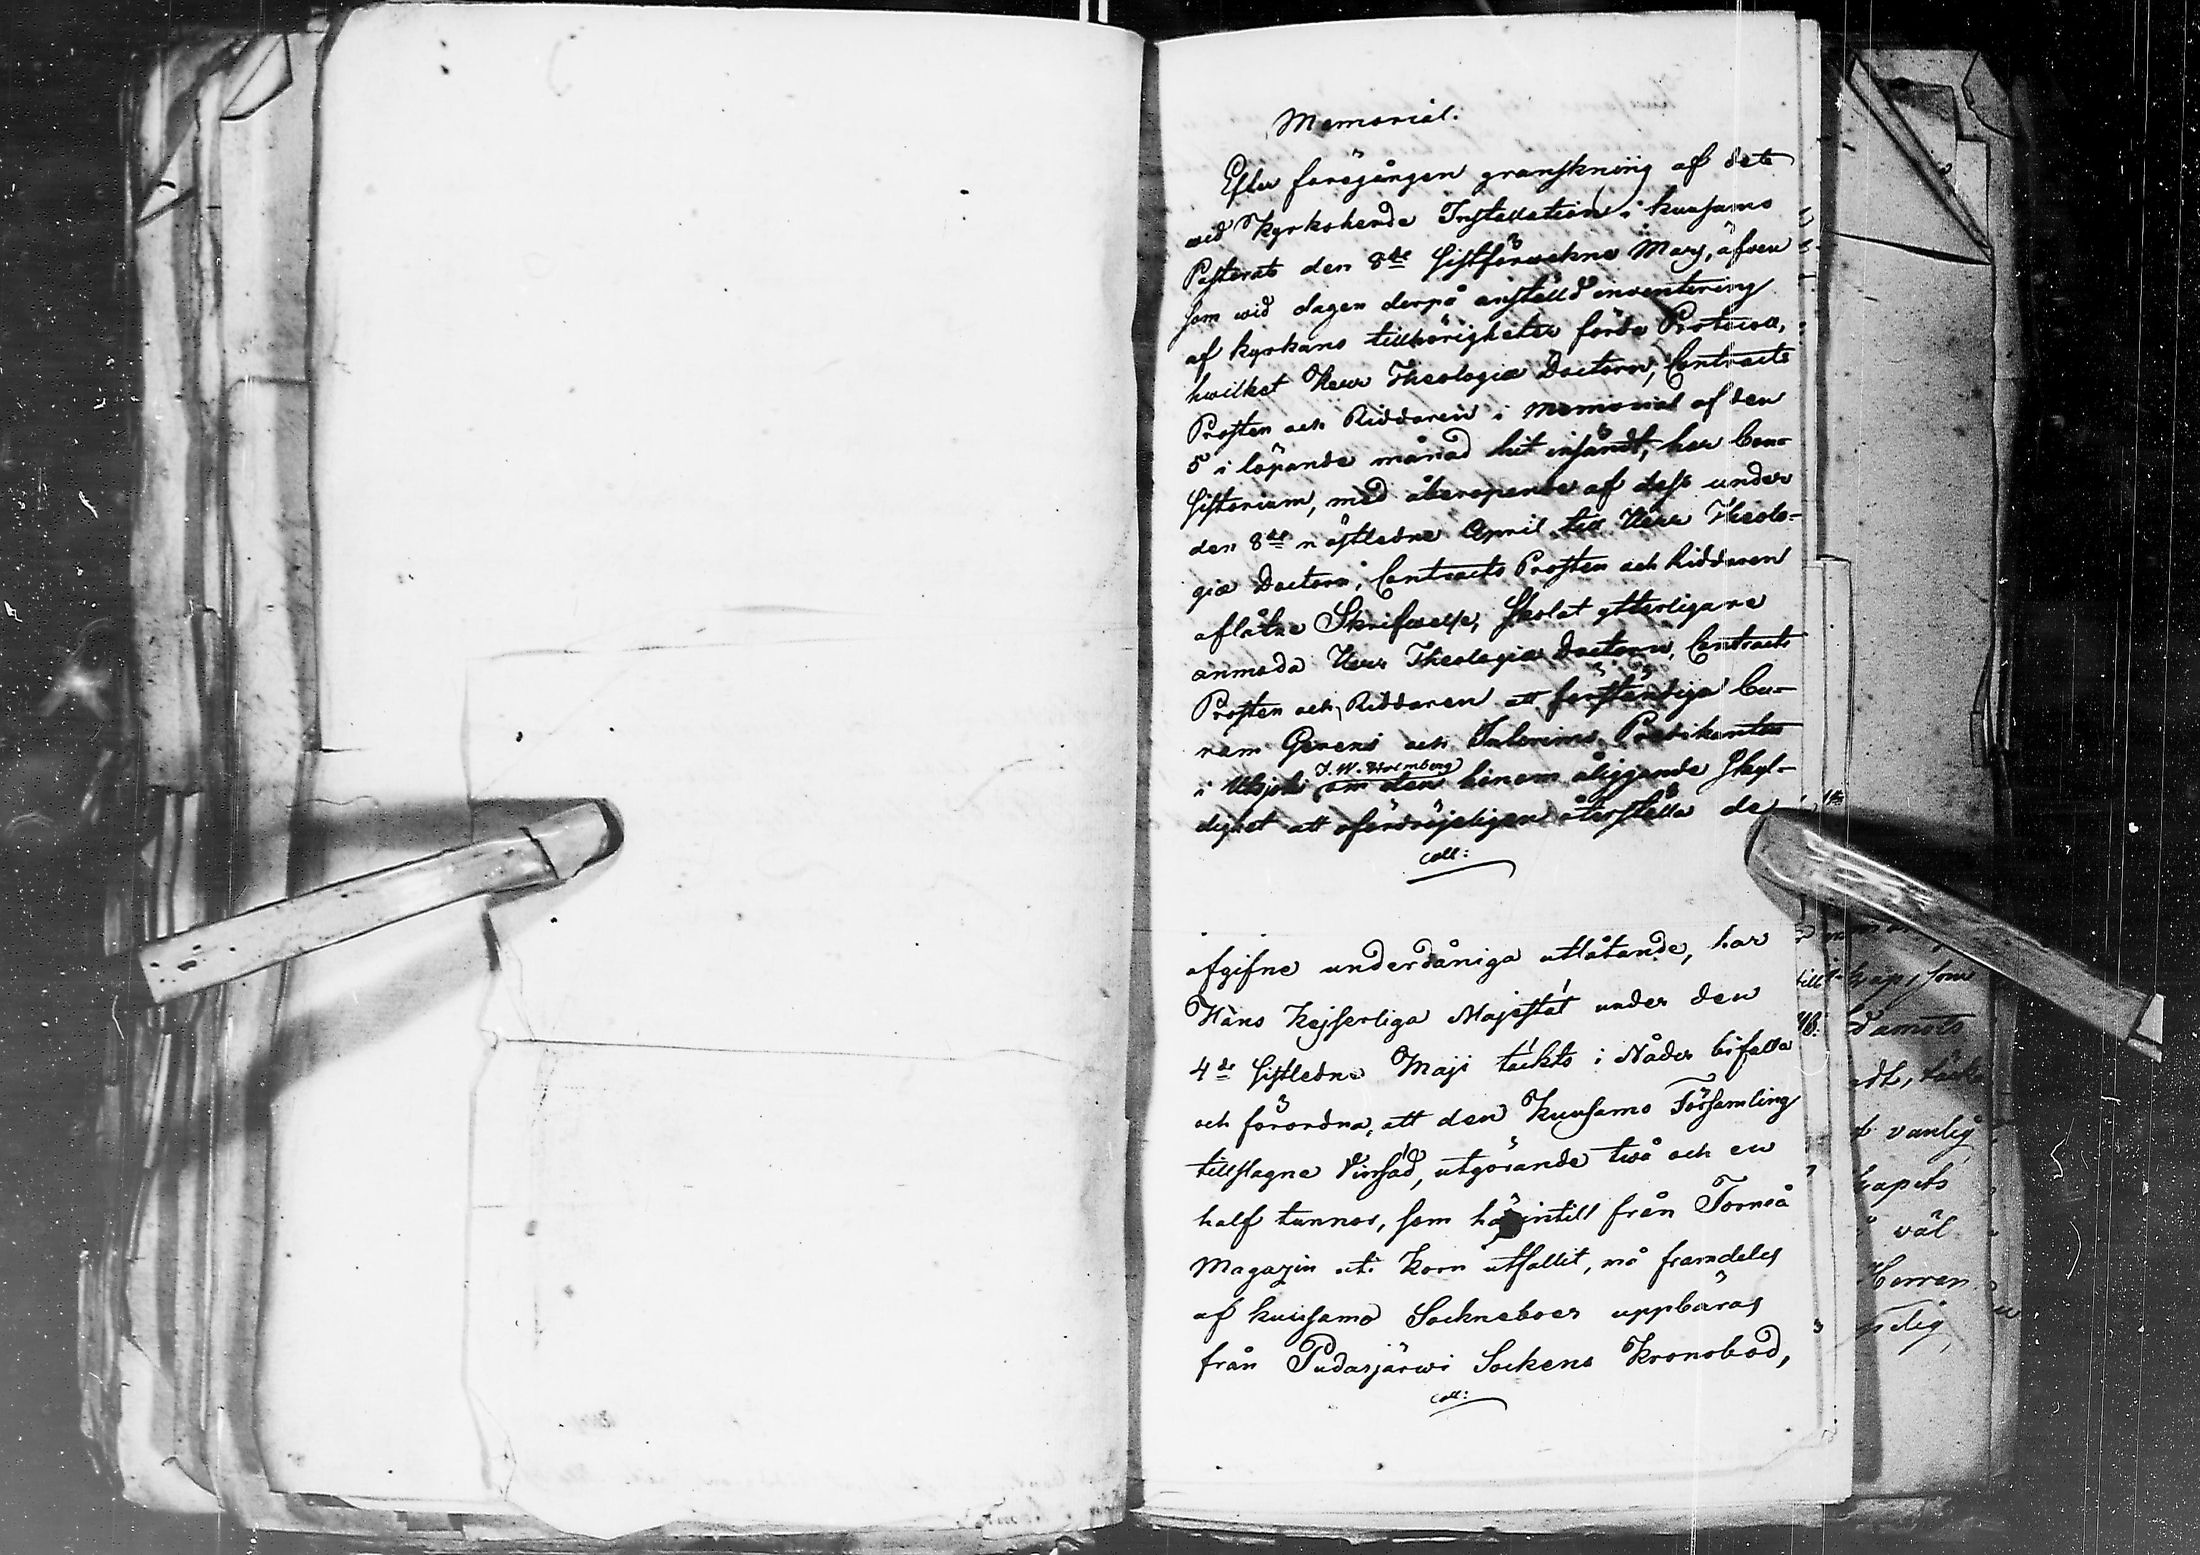 Memorial.
Efter föregången granskning af dete
wid Kyrkoherde Installation i Kuusamo
Pastorat den 8de sistförwekne Mars, äfven
som wid dagen derpå anställd inventering
af kyrkans tillhörigheter förde Protocoll,
hwilket Herr Theologiæ Doctorn, Contracts
Prosten och Riddaren i Memorial af den
5 i löpande månad hit insändt, har Con-
sistorium, med åberopande af dess under
den 8de nästledne April till Herr Theolo-
giæ Doctorn, Contracts Prosten och Riddaren
aflåtne Skrifwelse, skolat ytterligare
anmoda Herr Theologiæ Doctorn, Contracts
Prosten och Riddaren att förständiga Cu-
ram Gerens och Interims Predikanten
J. W. Holmberg
i Utsjoki om den honom åliggande skyl-
dighet att ofördröjeligen återställa de
coll:
afgifne underdåniga utlåtande, har
Hans Kejserliga Majestät under den
4de sistledne Maji täckts i Nåder bifalla
och förordna, att den Kuusamo Församling
tillslagne Vinsäd, utgörande två och en
half tunnor, som härintill från Torneå
Magazin uti Korn utfallit, må framdeles
af Kuusamo Sockneboer uppbäras
från Pudasjärwi Sockens Kronobod,
coll:
till
skap, som
damots
vanlig
väl
Herren